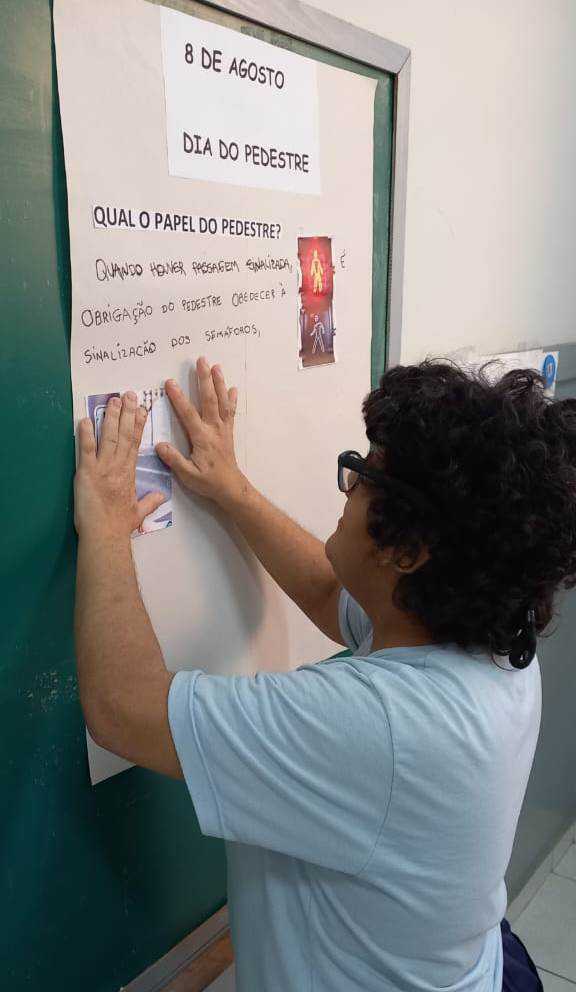 8 DE AGOSTO
DIA DO PEDESTRE
QUAL O PAPEL DO PEDESTRE?
QUANDO HOUVER PASSAGEM SINALIZADA, É
OBRIGAÇÃO DO PEDESTRE OBEDECER À
SINALIZAÇÃO DOS SEMÁFOROS,